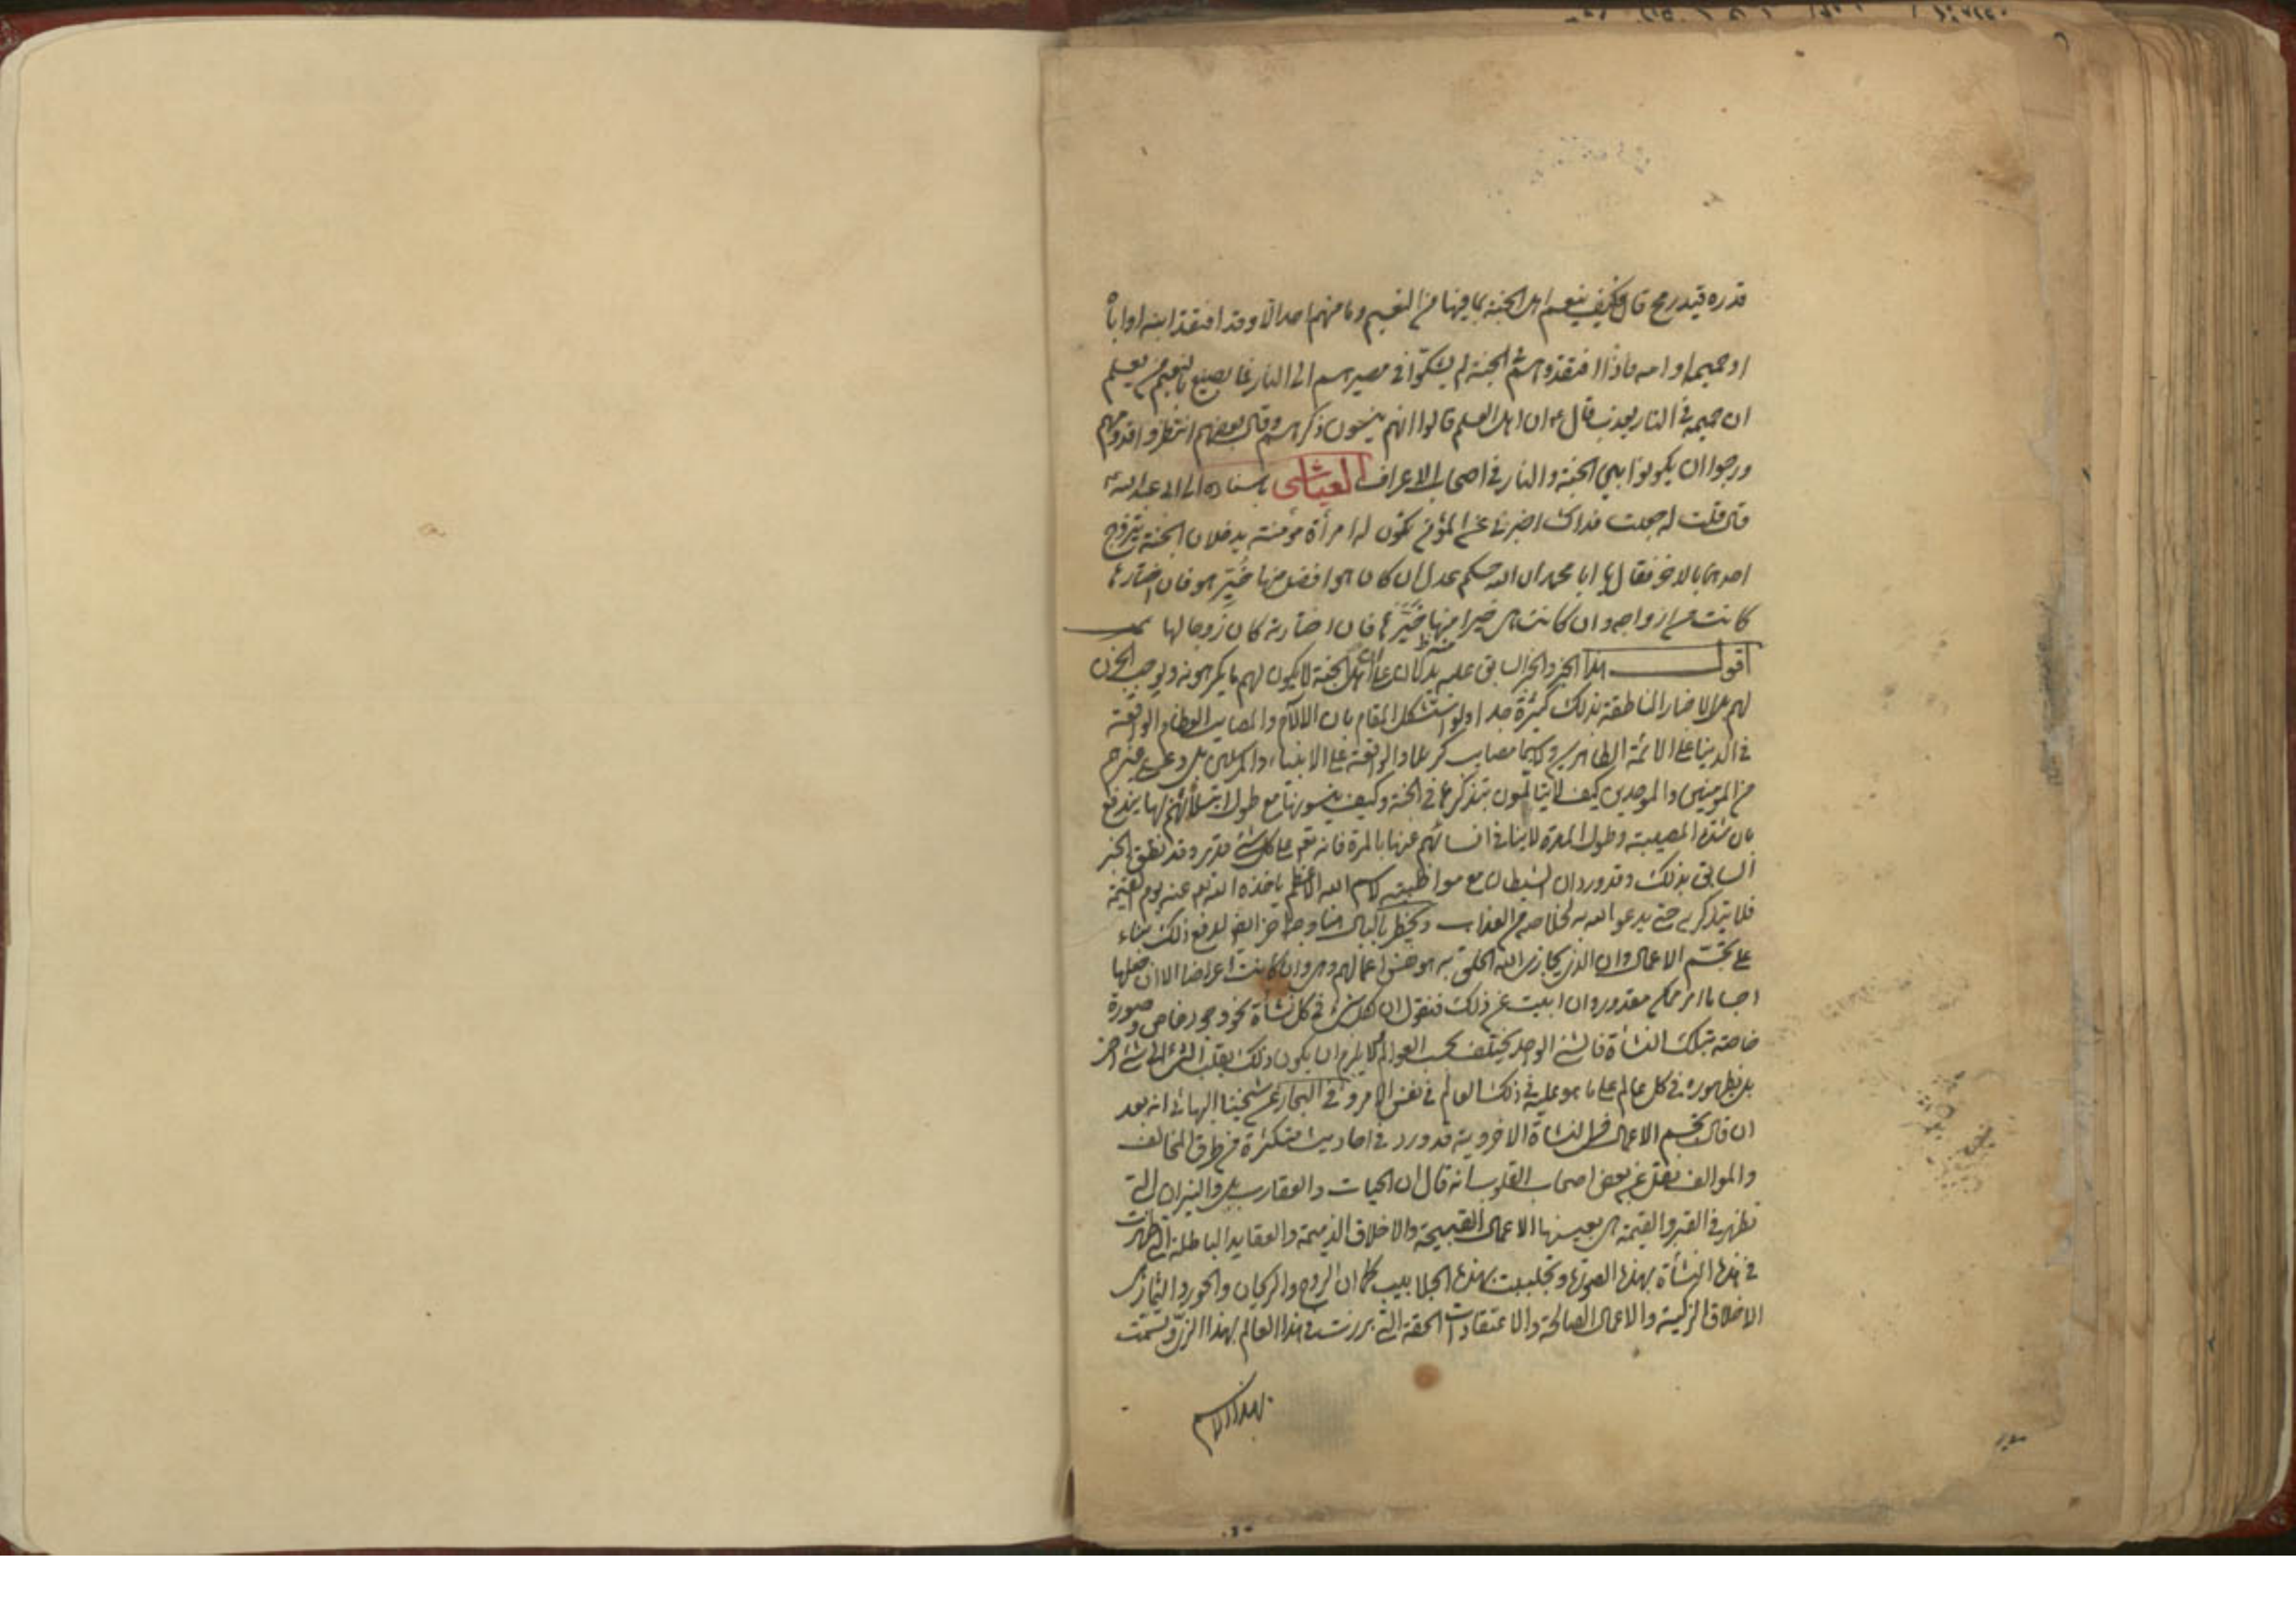 قدره قيد رمح قال فكيف ينعم اهل الجنة بما فيها من النعيم وما منهم احد الا وقد افتقد ابنه او اباه
او حميمه او امه فاذا افتقدوهم في الجنة لم يشكوا في مصيرهم الى النار فما يصنع بالنعيم من يعلم
ان حميمه في النار يعذب قال ع ان اهل العلم قالوا انهم ينسون ذكرهم وقال بعضهم انتظروا قدومهم
ورجوا ان يكونوا بين الجنة والنار في اصحاب الاعراف العياشي باسناده الى ابي عبد الله ع
قال قلت له جعلت فداك اخبرني عن المؤمن تكون له امرأة مؤمنة يدخلان الجنة يتزوج
احدهما بالاخر فقال يا ابا محمد ان الله حكم عدل ان كان هو افضل منها خيّر هو فان اختارها
كانت من ازواجه وان كانت هي خيرا منه خيّرها فان اختارته كان زوجا لها
اقول هذا الخبر والخبر السابق عليه يدلان على ان اهل الجنة لا يكون لهم ما يكرهونه ويوجب الحزن
لهم والاخبار الناطقة بذلك كثيرة جدا ولو استشكل المقام بان الالام والمصايب العظام الواقعة
في الدنيا على الائمة الطاهرين ولا سيما مصايب كربلا والواقعة على الانبياء والمرسلين بل وعلى غيرهم
من المؤمنين والموحدين كيف لا يتالمون بتذكرها في الجنة وكيف ينسونها مع طول ابتلائهم بها يندفع
بان شدة المصيبة وطول المدة لا ينافي انسائهم عنها بالمرة فانه تع على كل شئ قدير وقد نطق الخبر
السابق بذلك وقد ورد ان الشيطان مع مواظبته لاسم الله الاعظم ياخذه الله تع عنه يوم القيمة
فلا يتذكره حتى يدعو الله به لخلاصه من العذاب ويخطر بالبال هنا وجه اخر ايضا لدفع ذلك بناء
على تجسّم الاعمال وان الذي يجازي الله الخلق به هو نفس اعمالهم وهي وان كانت اعراضا الا ان جعلها
اجساما امر ممكن مقدور وان ابيت عن ذلك فنقول ان لكل شئ في كل نشأة نحو وجود خاص وصورة
خاصة بتلك النشأة فالشئ الواحد يختلف بحسب العوالم ولا يلزم ان يكون ذلك بقلب الشئ الى شئ اخر
بل بظهوره في كل عالم على ما هو عليه في ذلك العالم في نفس الامر وفي البحار عن شيخنا البهائي انه بعد
ان قال تجسم الاعمال في النشاة الاخروية قد ورد في احاديث متكثرة من طرق المخالف
والموالف نقل عن بعض اصحاب القلوب انه قال ان الحيات والعقارب بل والنيران التي
تظهر في القبر والقيمة هي بعينها الاعمال القبيحة والاخلاق الذميمة والعقايد الباطلة التي ظهرت
في هذه النشأة بهذه الصورة وتجلببت بهذه الجلابيب كما ان الروح والريحان والحور والثمار هي
الاخلاق الزكية والاعمال الصالحة والاعتقادات الحقة التي برزت في هذا العالم بهذا الزي وتسمّت
بهذا الاسم